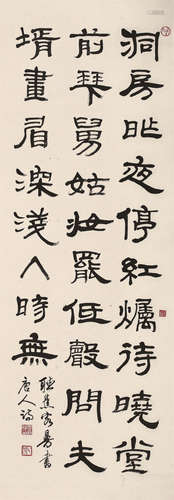 洞房昨夜停紅爥待曉堂
前拜舅姑妝罷低聲問夫
壻畫眉深淺入時無
書
唐人詩